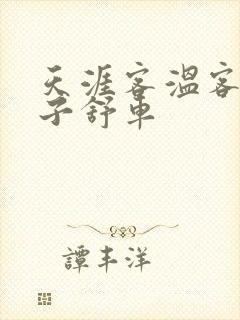 天涯客溫客
子舒車
譚丰洋